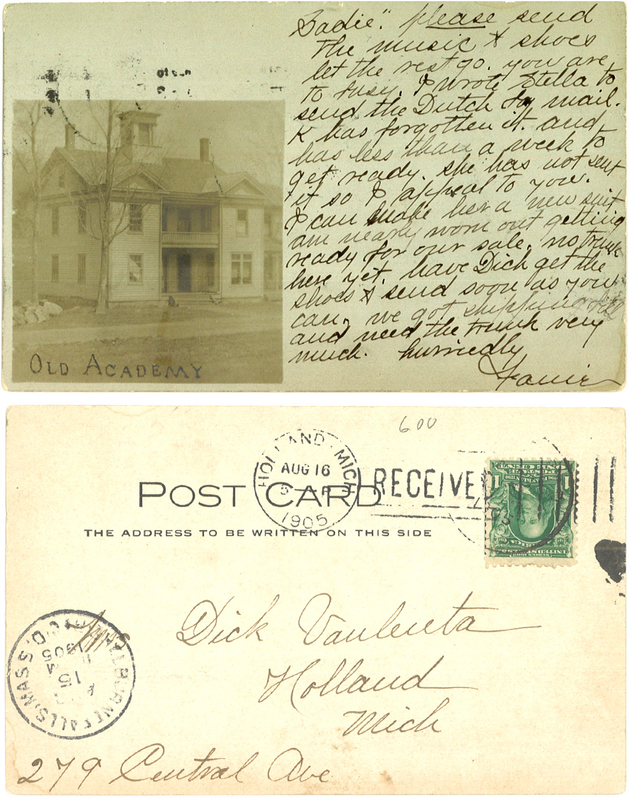 Sadie". please send
the music & shoes
let the rest go. you are
to busy. I wrote Stella to
send the Dutch by mail.
K has forgotten it. and
has less than a week to
get ready. she has not sent
it so I appeal to you.
I can make her a new suit
am nearly worn out getting
ready for our sale, no trunk
here yet. have Dick get the
shoes & send soon as you
can, we got shipping
and need the trunk very
much. hurriedly
OLD ACADEMY
600
HOLLAND, MICH.
AUG 16
1905
RECEIVED
POST CARD
THE ADDRESS TO BE WRITTEN ON THIS SIDE
1 1
SHELBURNE FALLS, MASS.
15
1905
REC'D.
Dick
Holland
Mich
279 Central Ave